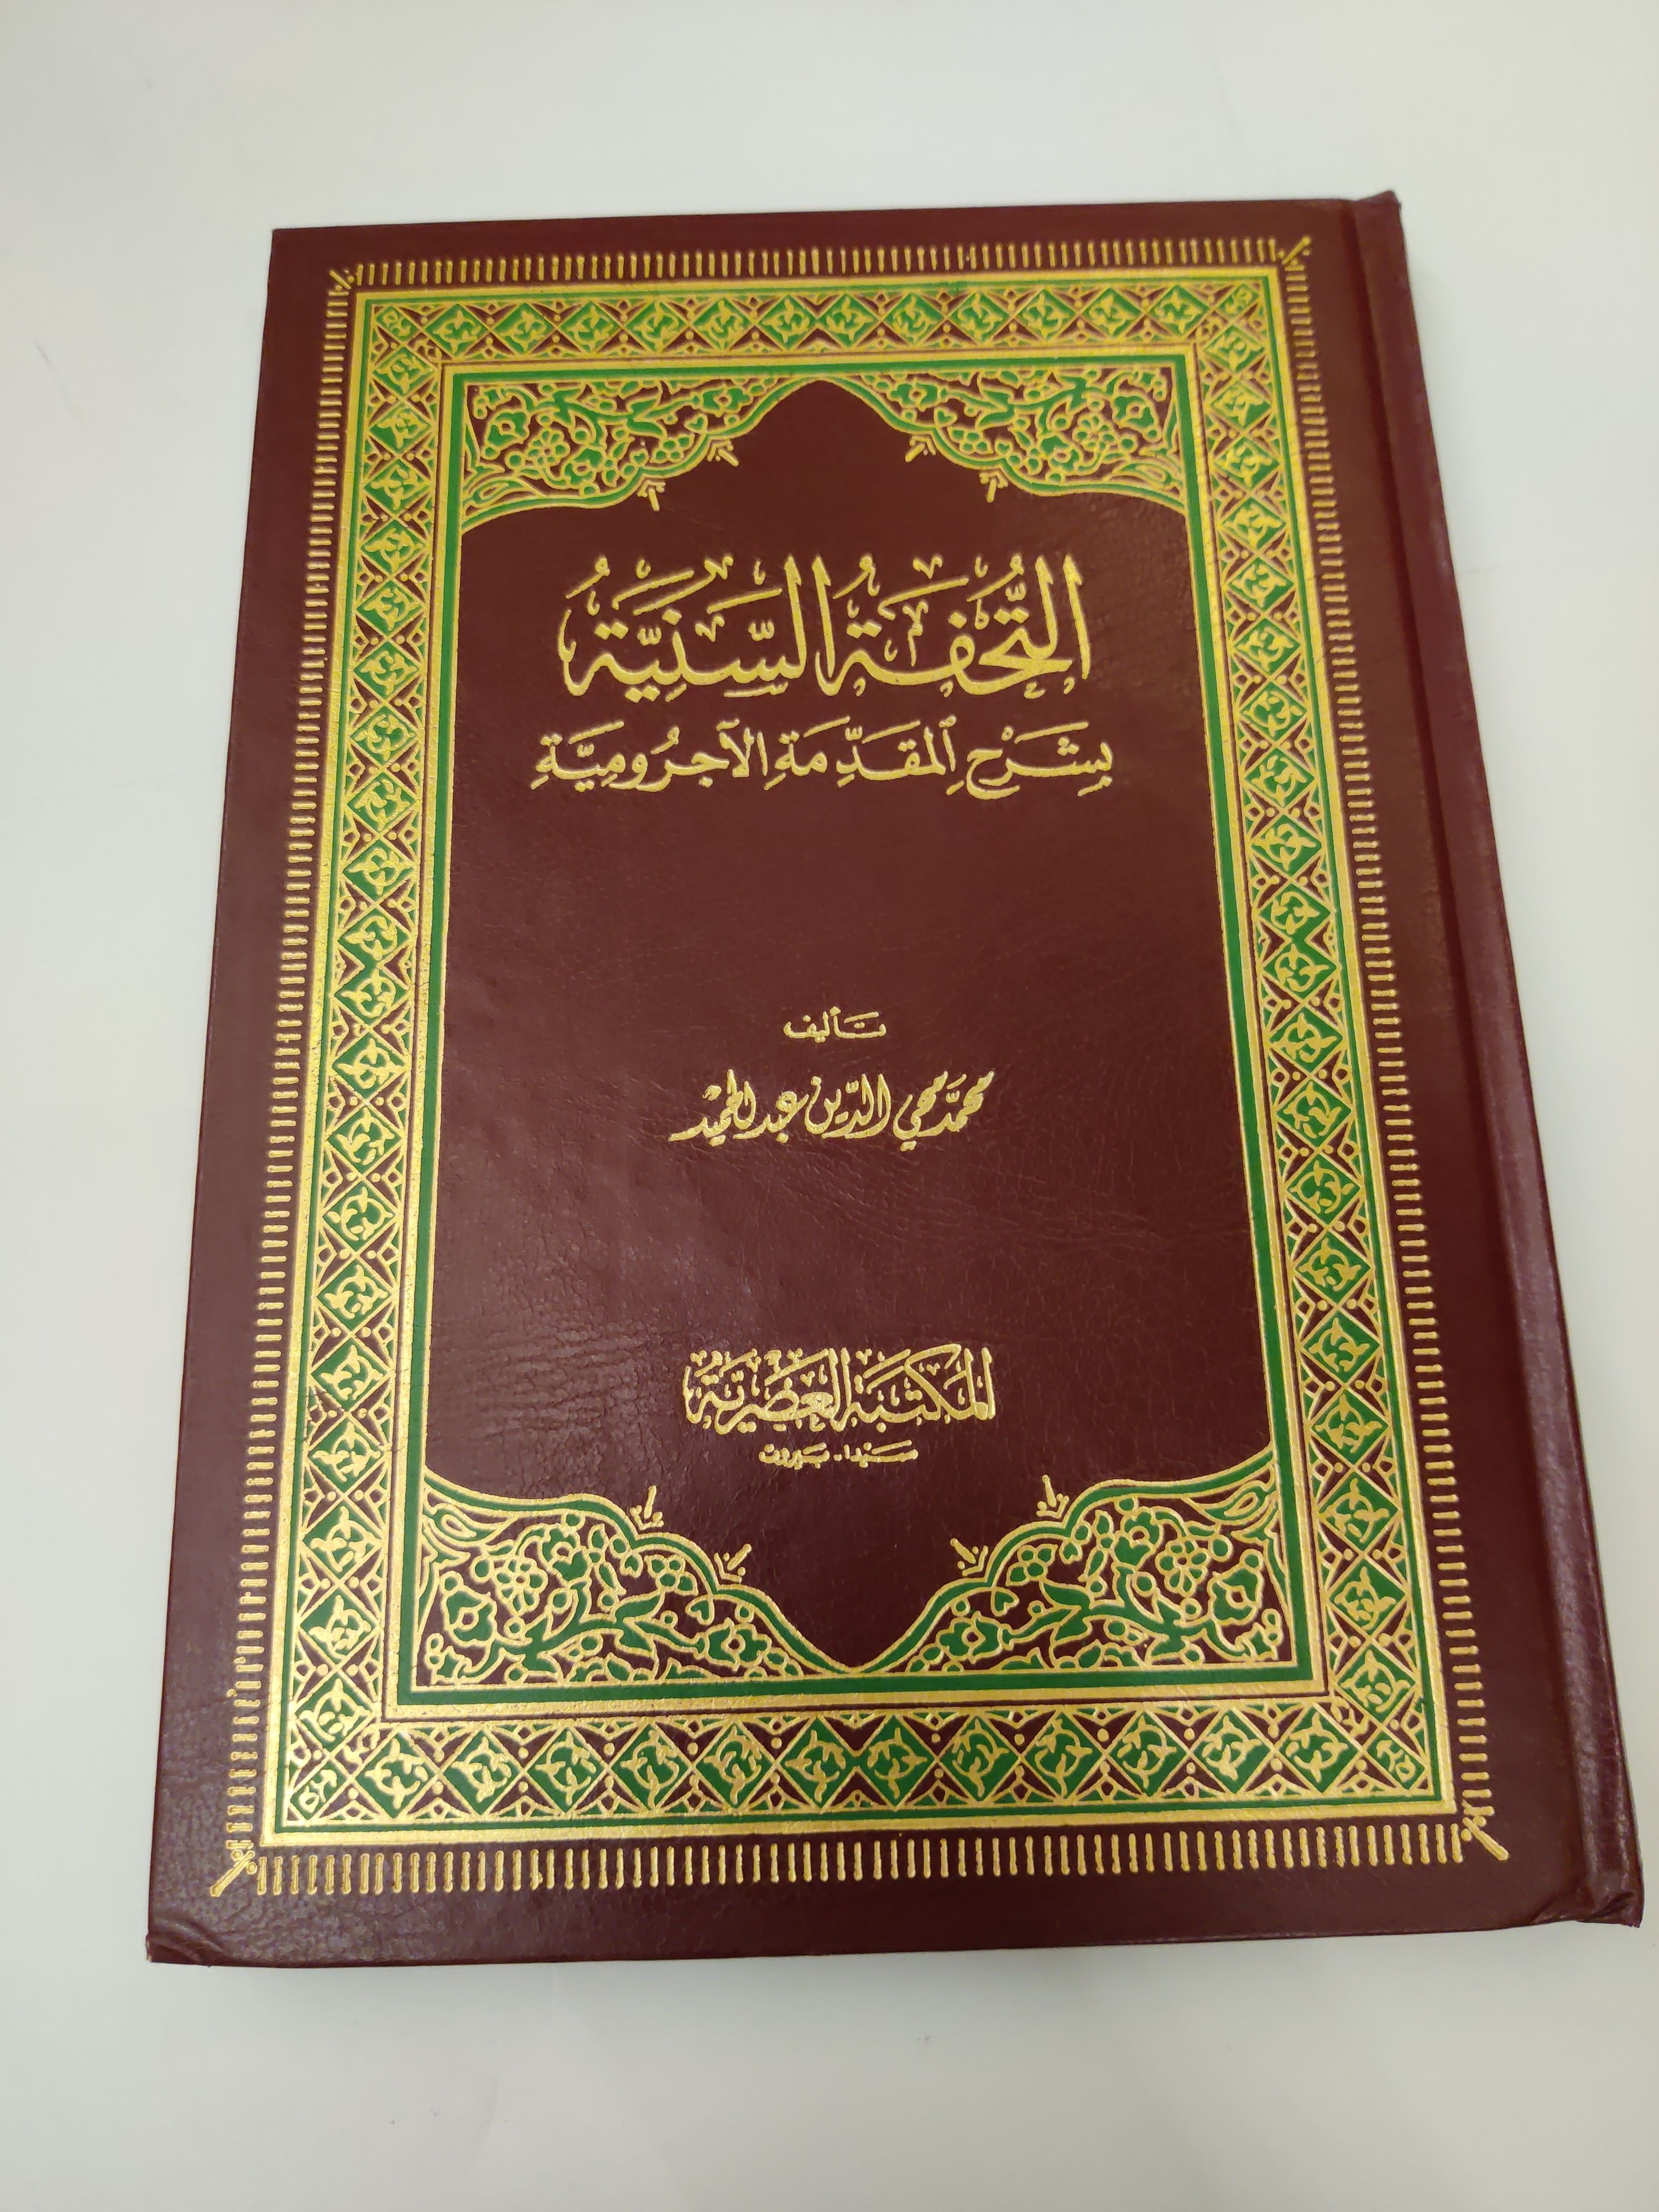 التُّحْفَةُ السَّنِيَّةُ
بِشَرْحِ ٱلْمُقَدِّمَةِ الآجُرُومِيَّةِ
تأليف
محمَّد محيي الدّين عبد الحميْد
المكتبة العصريّة
صَيْدَا - بَيروت